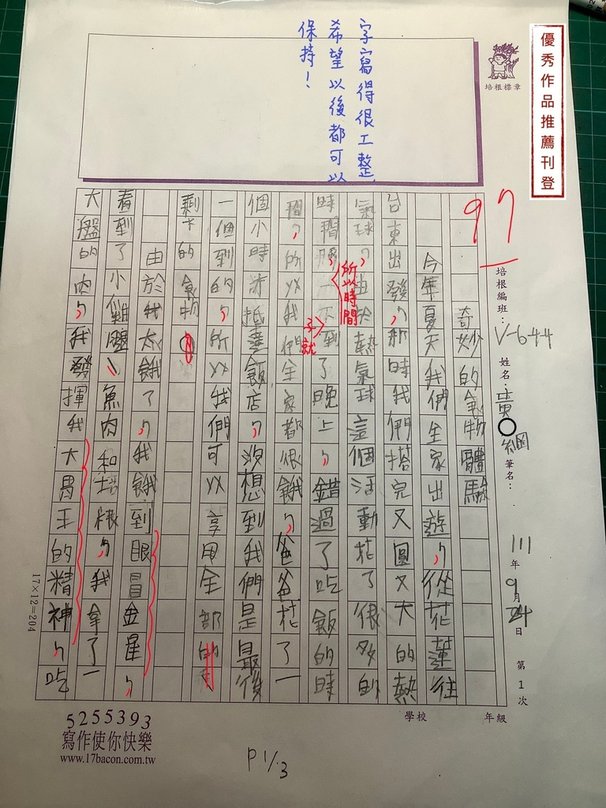 優秀作品推薦刊登
培根標章
培根編班：V-644 姓名：黃○綱 筆名： 111年9月24日 第1次
97
奇妙的食物體驗
今年夏天我們全家出遊，從花蓮往
台東出發，那時我們搭完又圓又大的熱
氣球，由於熱氣球這個活動花了很多的
所以時間
時間 到了晚上，錯過了吃飯的時
就
間，所以我們全家都很餓，爸爸花了一
個小時才抵達飯店，沒想到我們是最後
一個到的，所以我們可以享用全部的
剩下的食物。
由於我太餓了，我餓到眼冒金星，
看到了小雞腿、魚肉和培根，我拿了一
大盤的肉，我發揮我大胃王的精神，吃
字寫得很工整
希望以後都可以
保持！
17×12=204
學校 年級
5255393
寫作使你快樂
www.17bacon.com.tw
P1/3